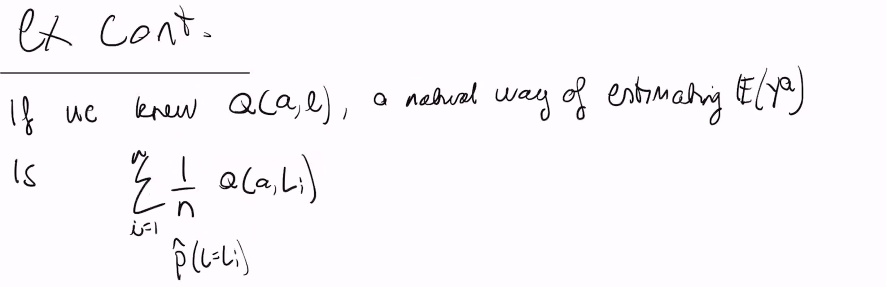 ex cont.
If we knew Q(a,l), a natural way of estimating 𝔼(Yᵃ)
Is ∑ᵢ₌₁ⁿ 1/n Q(a,Lᵢ)
p̂(L=Lᵢ)